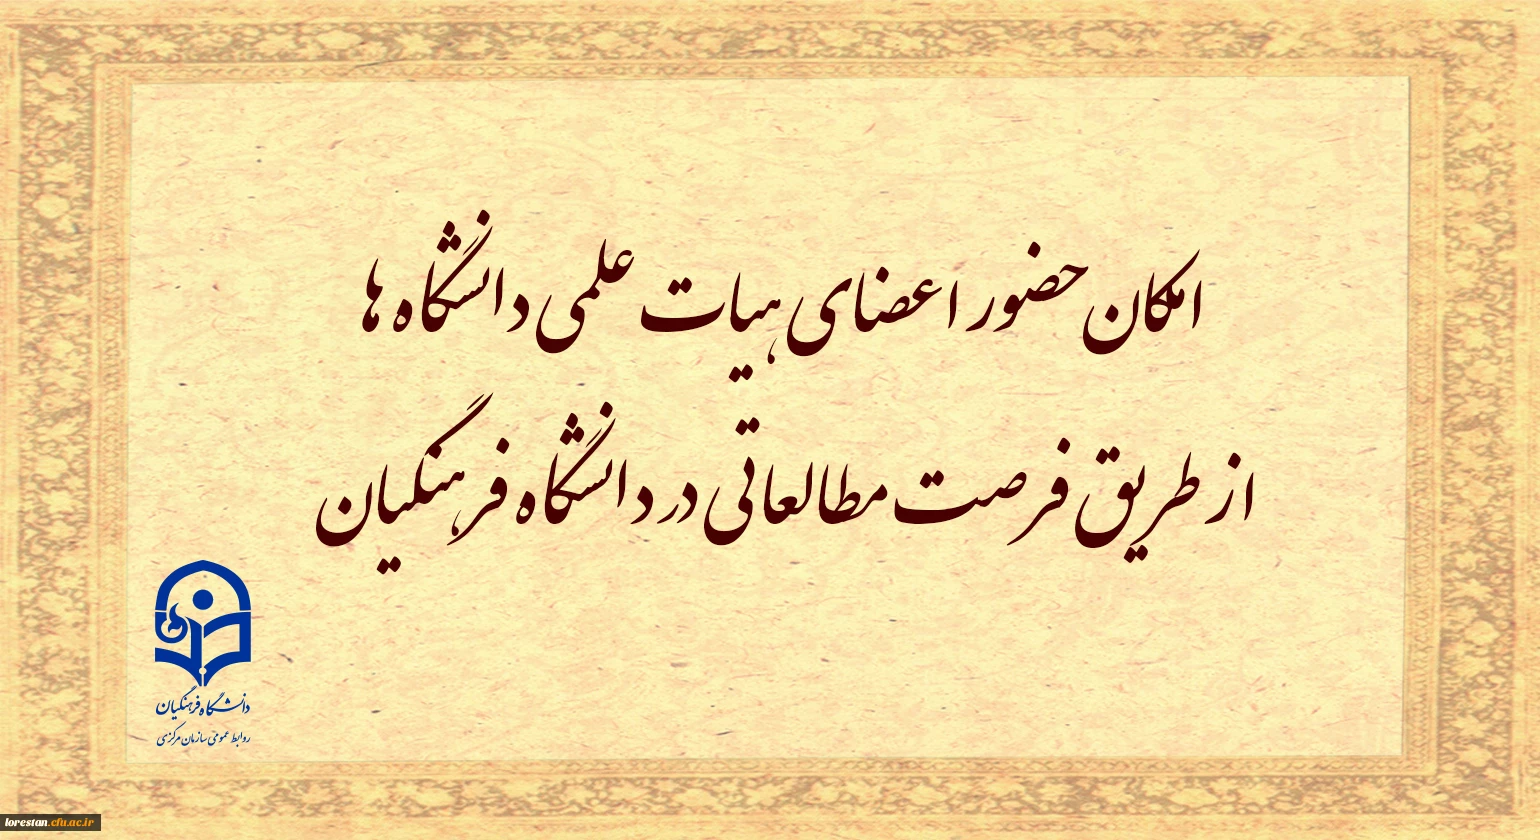 امکان حضور اعضای هیات علمی دانشگاه ها
از طریق فرصت مطالعاتی در دانشگاه فرهنگیان
دانشگاه فرهنگیان
روابط عمومی سازمان مرکزی
lorestan.cfu.ac.ir